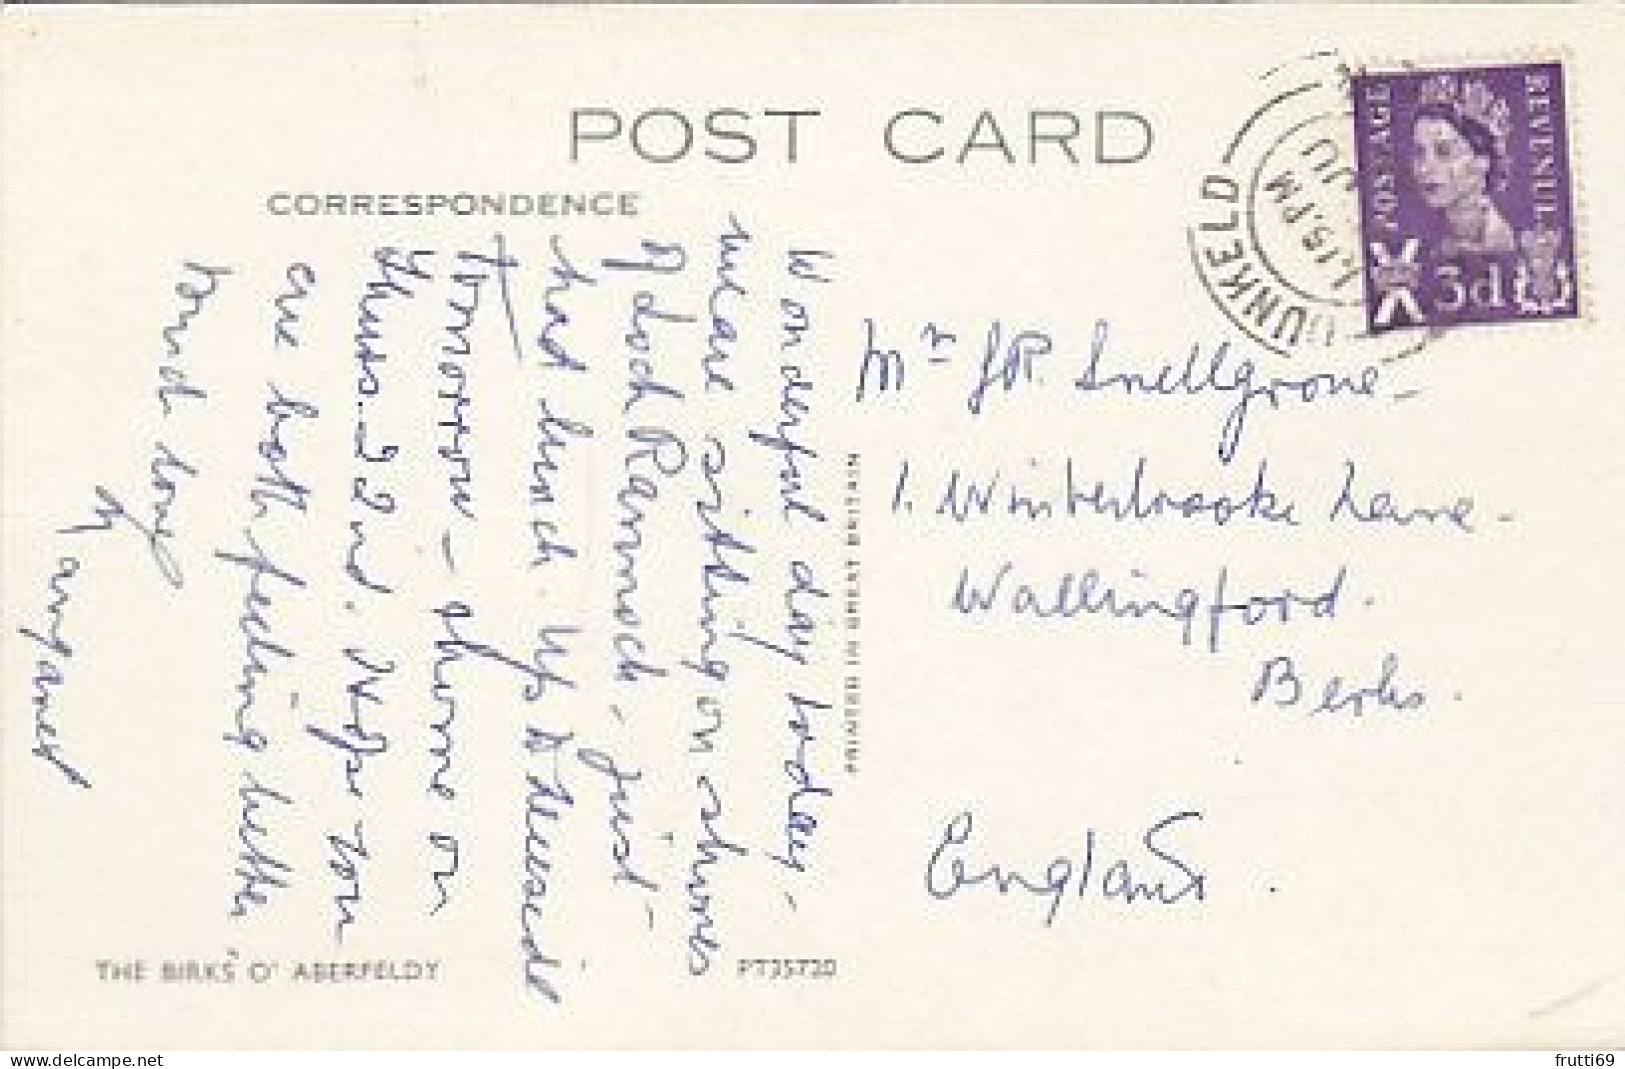 POST CARD
CORRESPONDENCE
Wonderful day today -
we are sitting on shores
of Loch Rannoch, just
had lunch. Up to
tomorrow - home on
Thurs. 22nd. Hope you
are both feeling better,
Fond love,
Margaret
THE BIRKS O' ABERFELDY
PT35720
PRINTED IN GREAT BRITAIN
DUNKELD
1.15 PM
JU
POSTAGE
REVENUE
3d
Mr J.R. Snellgrove -
1. Winterbrooke Lane -
Wallingford.
Berks.
England.
delcampe.net
frutti69